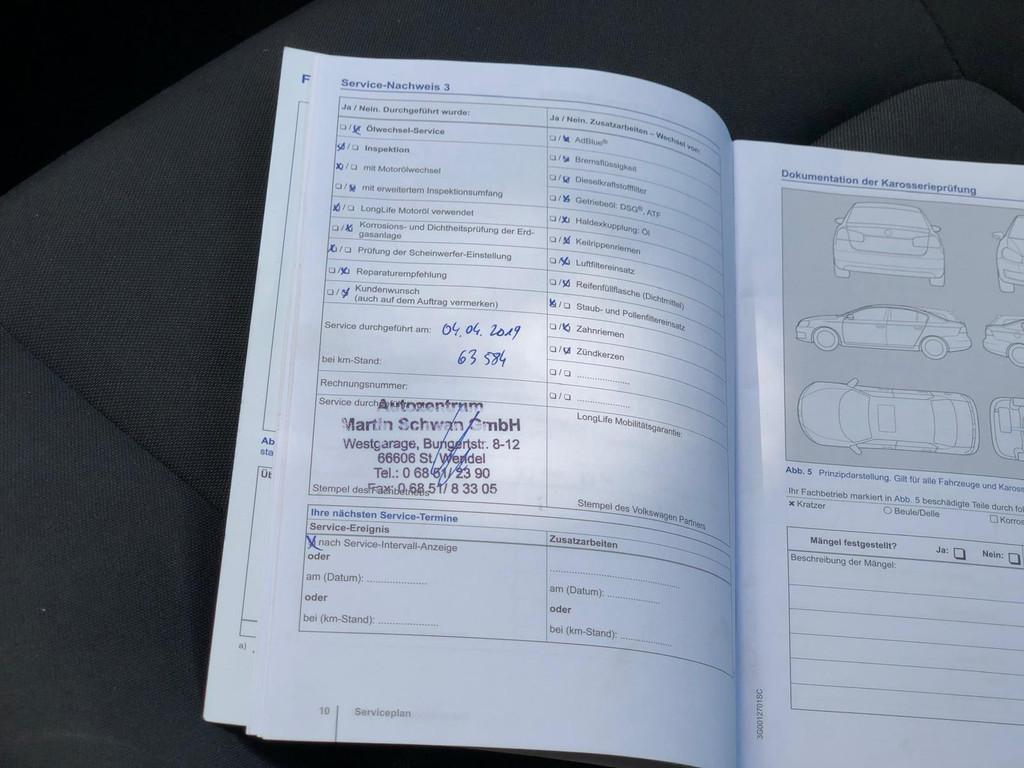 F
Service-Nachweis 3
Ja / Nein. Durchgeführt wurde:
Ölwechsel-Service
Inspektion
mit Motorölwechsel
mit erweitertem Inspektionsumfang
LongLife Motoröl verwendet
Korrosions- und Dichtheitsprüfung der Erd-
gasanlage
Prüfung der Scheinwerfer-Einstellung
Reparaturempfehlung
Kundenwunsch
(auch auf dem Auftrag vermerken)
Service durchgeführt am: 04.04.2019
bei km-Stand: 63 584
Rechnungsnummer:
Service durch
Autozentrum
Martin Schwan GmbH
Westgarage, Bungertstr. 8-12
66606 St. Wendel
Tel.: 0 68 51/ 23 90
Fax: 0 68 51/ 8 33 05
Stempel des Fachbetriebs
Ja / Nein. Zusatzarbeiten – Wechsel von:
AdBlue®
Bremsflüssigkeit
Dieselkraftstofffilter
Getriebeöl: DSG®, ATF
Haldexkupplung: Öl
Keilrippenriemen
Luftfiltereinsatz
Reifenfüllflasche (Dichtmittel)
Staub- und Pollenfiltereinsatz
Zahnriemen
Zündkerzen
LongLife Mobilitätsgarantie:
Stempel des Volkswagen Partners
Ihre nächsten Service-Termine
Service-Ereignis
nach Service-Intervall-Anzeige
oder
am (Datum):
oder
bei (km-Stand):
Zusatzarbeiten
am (Datum):
oder
bei (km-Stand):
10 Serviceplan
Ab
sta
Üt
a)
Dokumentation der Karosserieprüfung
Abb. 5 Prinzipdarstellung. Gilt für alle Fahrzeuge und Kaross
Ihr Fachbetrieb markiert in Abb. 5 beschädigte Teile durch fol
x Kratzer
Beule/Delle
Korros
Mängel festgestellt? Ja: Nein:
Beschreibung der Mängel:
3G0012701SC